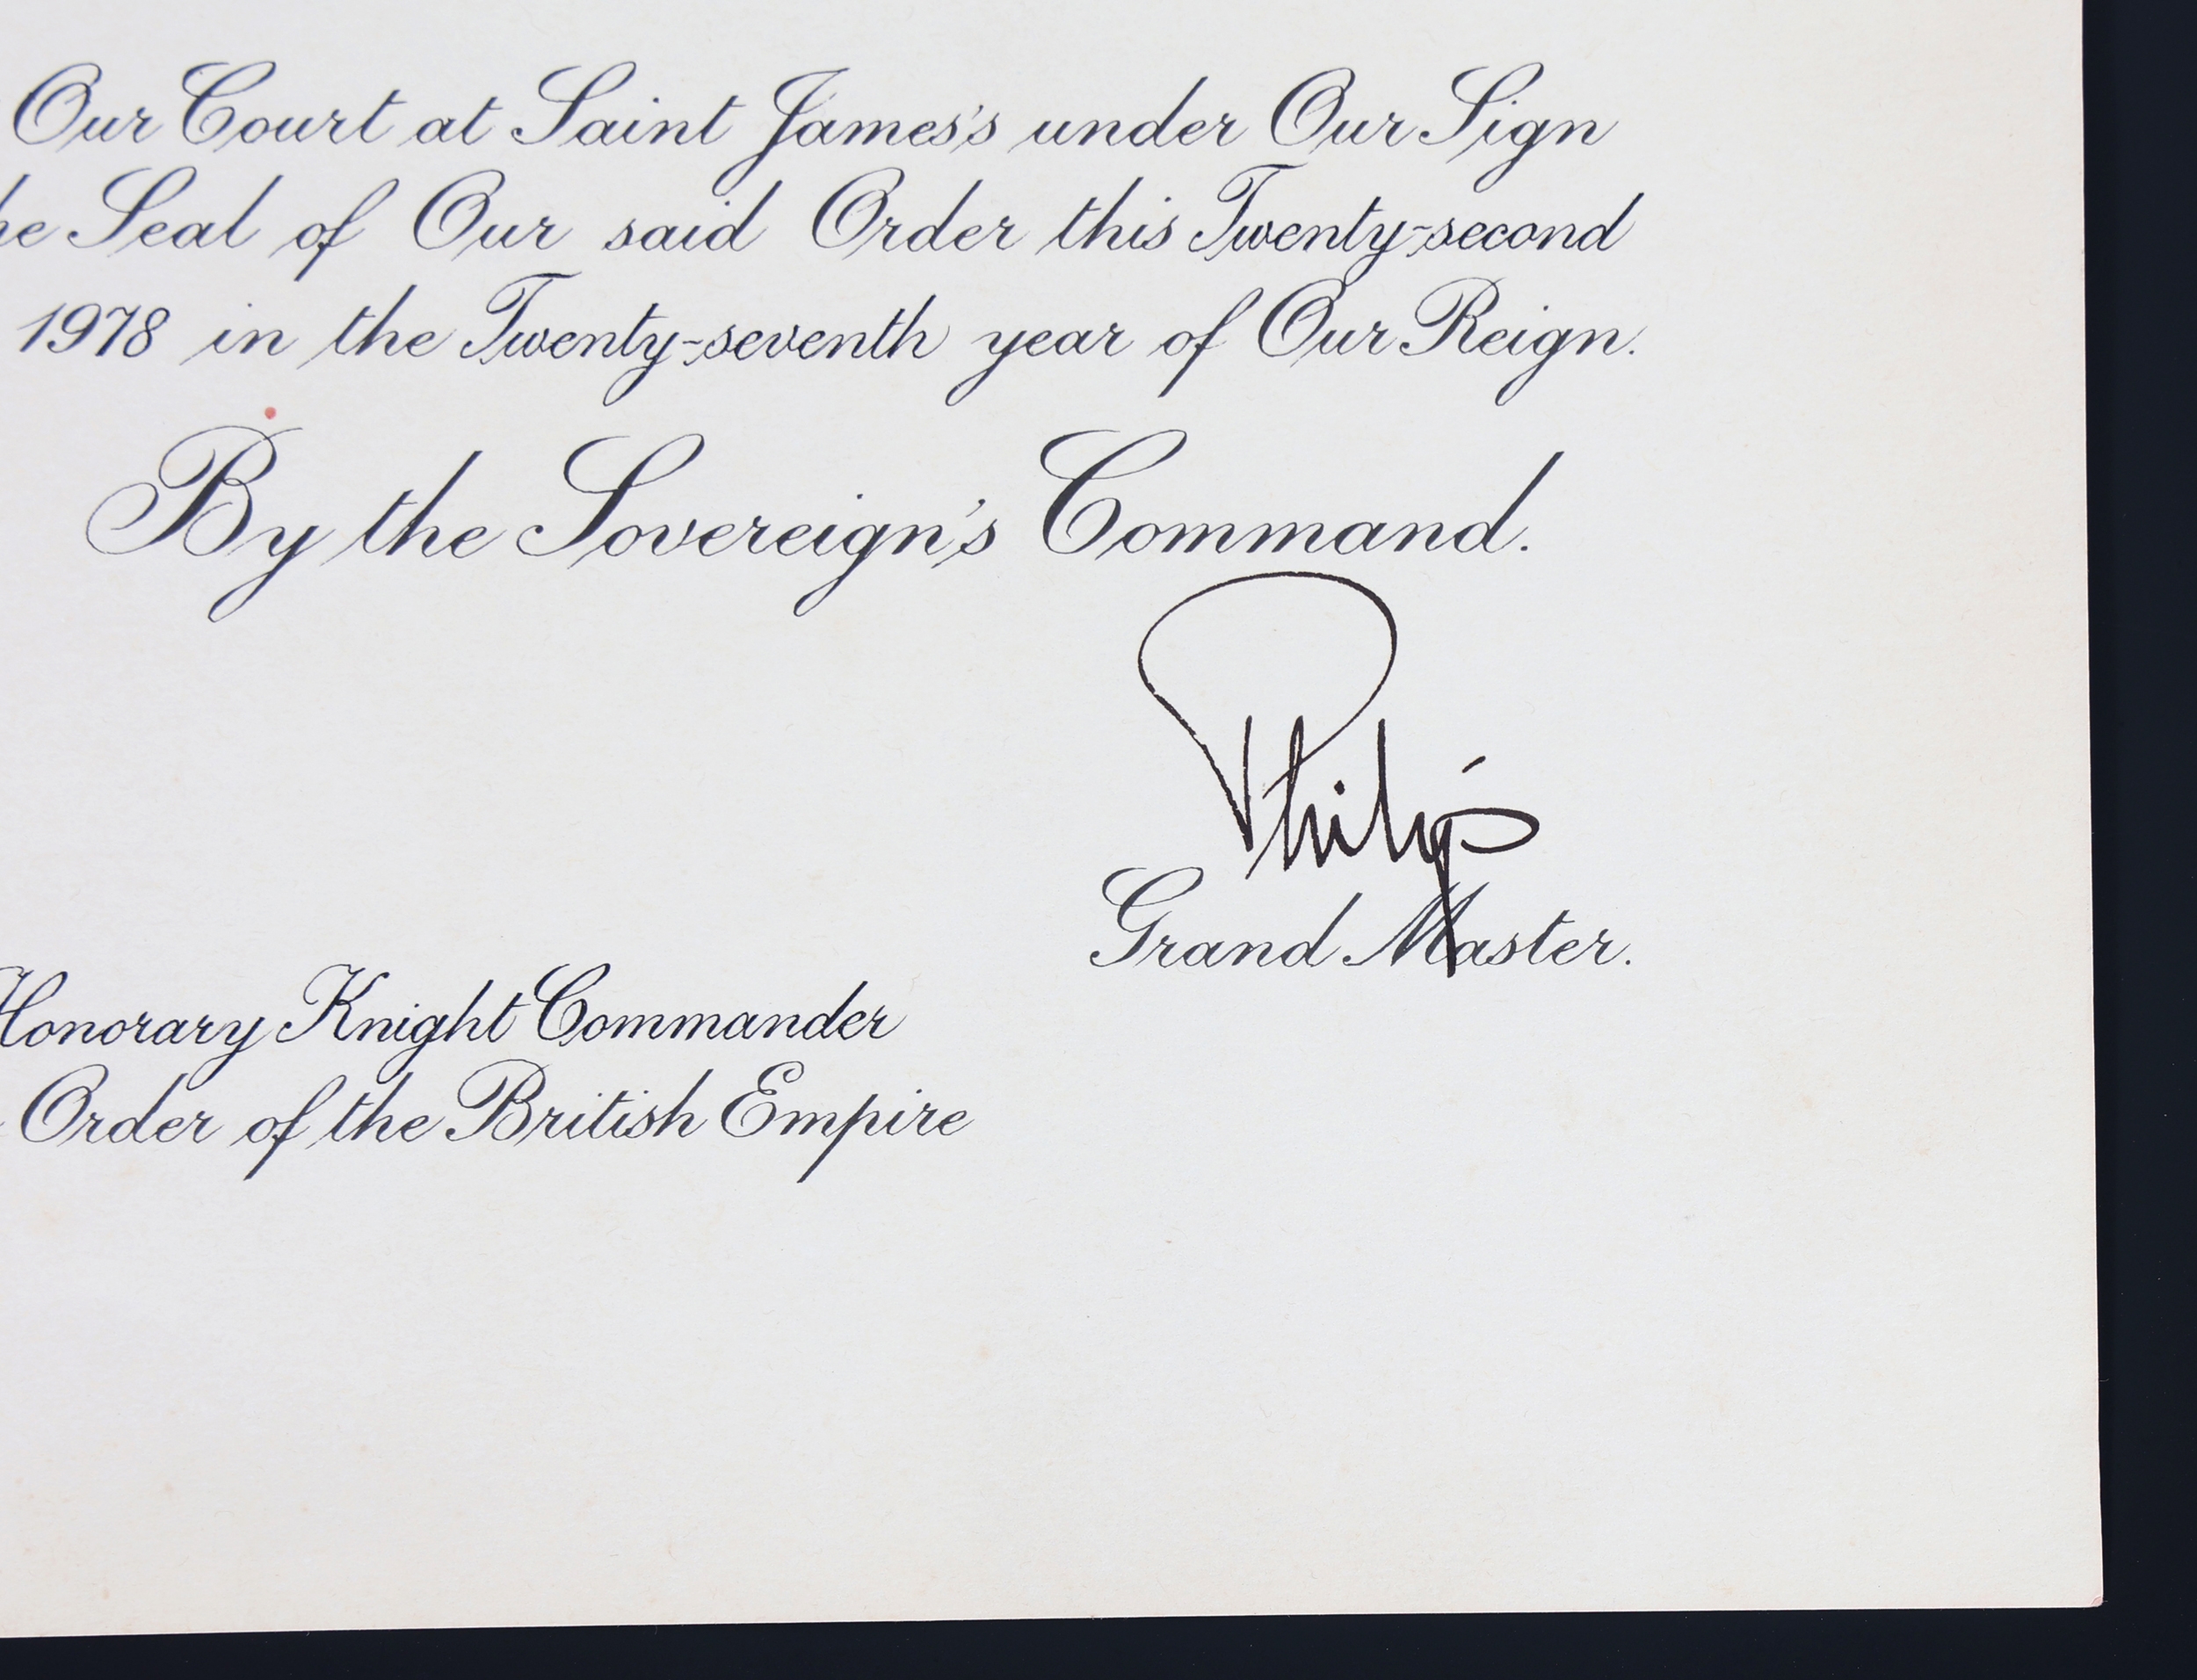 Our Court at Saint James's under Our Sign
he Seal of Our said Order this Twenty-second
1978 in the Twenty-seventh year of Our Reign.
By the Sovereign's Command.
Philip
Grand Master.
Honorary Knight Commander
Order of the British Empire